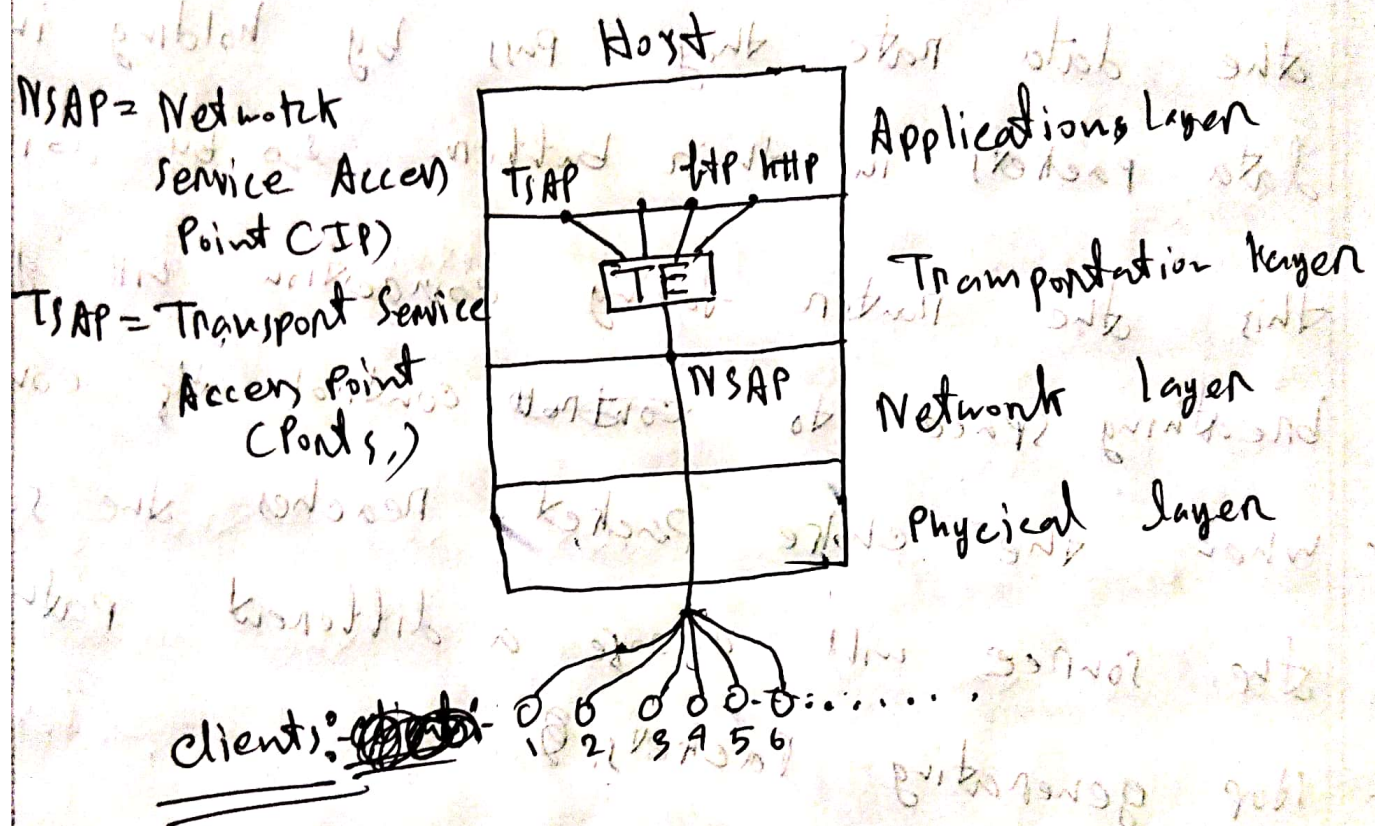 Host
NSAP = Network
Service Access
Point (IP)
TSAP = Transport Service
Access Point
(Ports,)
TSAP ftp http
TE
NSAP
Applications Layer
Transportation Layer
Network layer
Phycical layer
clients:-
1 2 3 4 5 6